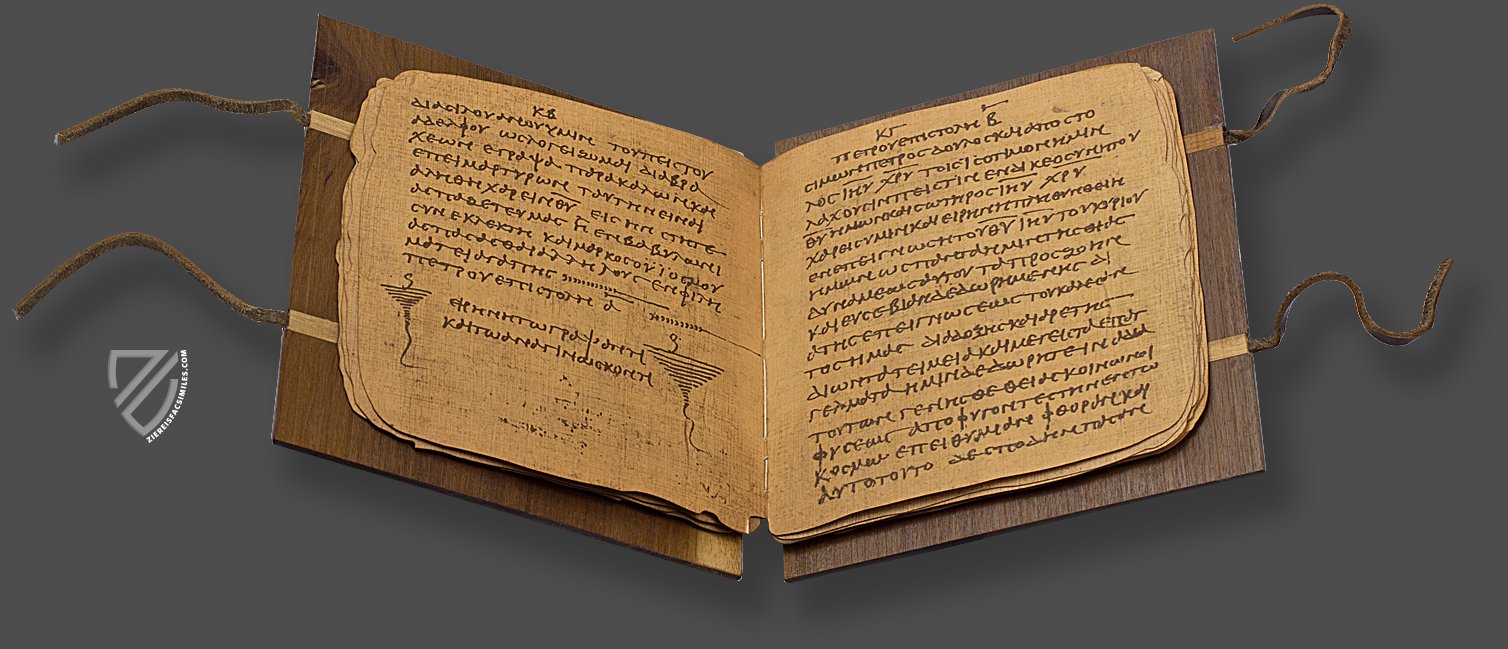 ΚΒ
ΔΙΑ ϹΙΛΟΥΑΝΟΥ ΥΜΕΙΝ ΤΟΥ ΠΕΙϹΤΟΥ
ΑΔΕΛΦΟΥ ΩϹ ΛΟΓΕΙΖΟΜΑΙ ΔΙΑ ΒΡΑ
ΧΕΩΝ ΕΓΡΑΨΑ ΠΑΡΑΚΑΛΩΝ ΚΑΙ
ΕΠΕΙΜΑΡΤΥΡΩΝ ΤΑΥΤΗΝ ΕΙΝΑΙ
ΑΛΗΘΗ ΧΑΡΕΙΝ ΘΥ ΕΙϹ ΗΝ ϹΤΗΤΕ
ΑϹΠΑΖΕΤΕ ΥΜΑϹ Η ΕΝ ΒΑΒΥΛΩΝΕΙ
ϹΥΝΕΚΛΕΚΤΗ ΚΑΙ ΜΑΡΚΟϹ Ο ΥΙΟϹ ΜΟΥ
ΑϹΠΑϹΑϹΘΑΙ ΑΛΛΗΛΟΥϹ ΕΝ ΦΙΛΗ
ΜΑΤΕΙ ΑΓΑΠΗϹ
ΠΕΤΡΟΥ ΕΠΙϹΤΟΛΗ Α
ΕΙΡΗΝΗ ΤΩ ΓΡΑΨΑΝΤΙ
ΚΑΙ ΤΩ ΑΝΑΓΙΝΩϹΚΟΝΤΙ
ΚΓ
ΠΕΤΡΟΥ ΕΠΙϹΤΟΛΗ Β
ϹΙΜΩΝ ΠΕΤΡΟϹ ΔΟΥΛΟϹ ΚΑΙ ΑΠΟϹΤΟ
ΛΟϹ ΙΗΥ ΧΡΥ ΤΟΙϹ ΙϹΟΤΙΜΟΝ ΗΜΙΝ
ΛΑΧΟΥϹΙΝ ΠΕΙϹΤΙΝ ΕΝ ΔΙΚΕΟϹΥΝΗ ΤΟΥ
ΘΥ ΗΜΩΝ ΚΑΙ ϹΩΤΗΡΟϹ ΙΗΥ ΧΡΥ
ΧΑΡΕΙϹ ΥΜΙΝ ΚΑΙ ΕΙΡΗΝΗ ΠΛΗΘΥΝΘΕΙΗ
ΕΝ ΕΠΕΙΓΝΩϹΗ ΤΟΥ ΘΥ ΙΗΥ ΤΟΥ ΚΥΡΙΟΥ
ΗΜΩΝ ΩϹ ΠΑΝΤΑ ΗΜΙΝ ΤΗϹ ΘΙΑϹ
ΔΥΝΑΜΕΩϹ ΑΥΤΟΥ ΤΑ ΠΡΟϹ ΖΩΗΝ
ΚΑΙ ΕΥϹΕΒΙΑΝ ΔΕΔΩΡΗΜΕΝΗϹ ΔΙ
Α ΤΗϹ ΕΠΕΙΓΝΩϹΕΩϹ ΤΟΥ ΚΑΛΕϹΑΝ
ΤΟϹ ΗΜΑϹ ΔΙΑ ΔΟΞΗϹ ΚΑΙ ΑΡΕΤΗϹ
ΔΙ ΩΝ ΤΑ ΤΕΙΜΕΙΑ ΚΑΙ ΜΕΓΕΙϹΤΑ ΕΠΑΓ
ΓΕΛΜΑΤΑ ΗΜΙΝ ΔΕΔΩΡΗΤΕ ΙΝΑ ΔΙΑ
ΤΟΥΤΩΝ ΓΕΝΗϹΘΕ ΘΕΙΑϹ ΚΟΙΝΩΝΟΙ
ΦΥϹΕΩϹ ΑΠΟΦΥΓΟΝΤΕϹ ΤΗΝ ΕΝ ΤΩ
ΚΟϹΜΩ ΕΠΕΙΘΥΜΙΑΝ ΦΘΟΡΑϹ ΚΑΙ
ΑΥΤΟ ΤΟΥΤΟ ΔΕ ϹΠΟΔΗΝ ΠΑϹΑΝ
ZIEREISFACSIMILES.COM